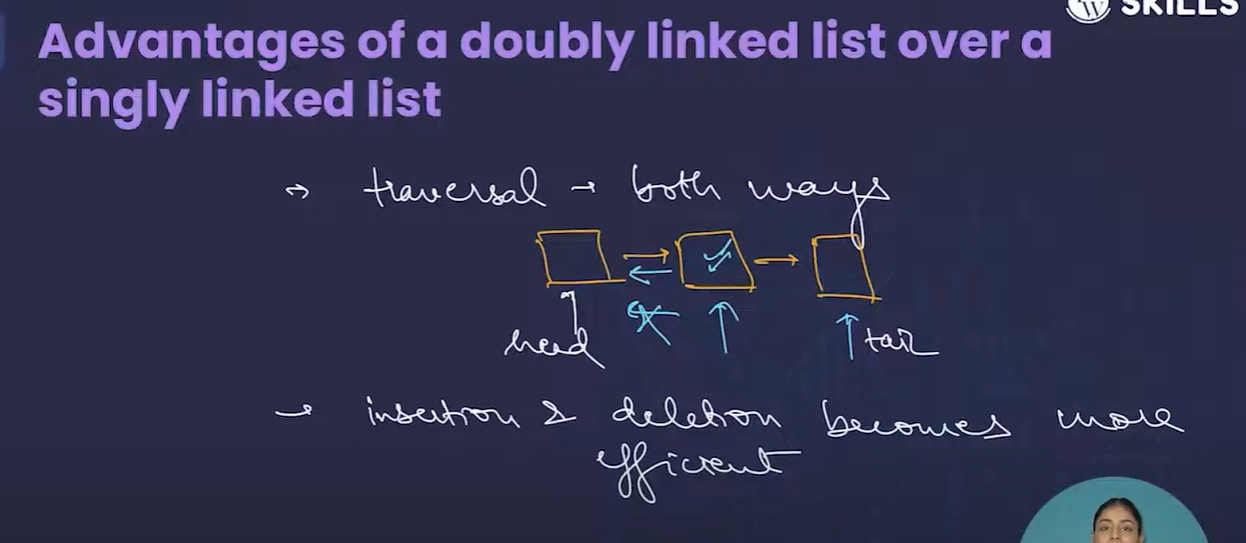 SKILLS
Advantages of a doubly linked list over a
singly linked list
traversal → both ways
head
tail
→ insertion & deletion becomes more
efficient